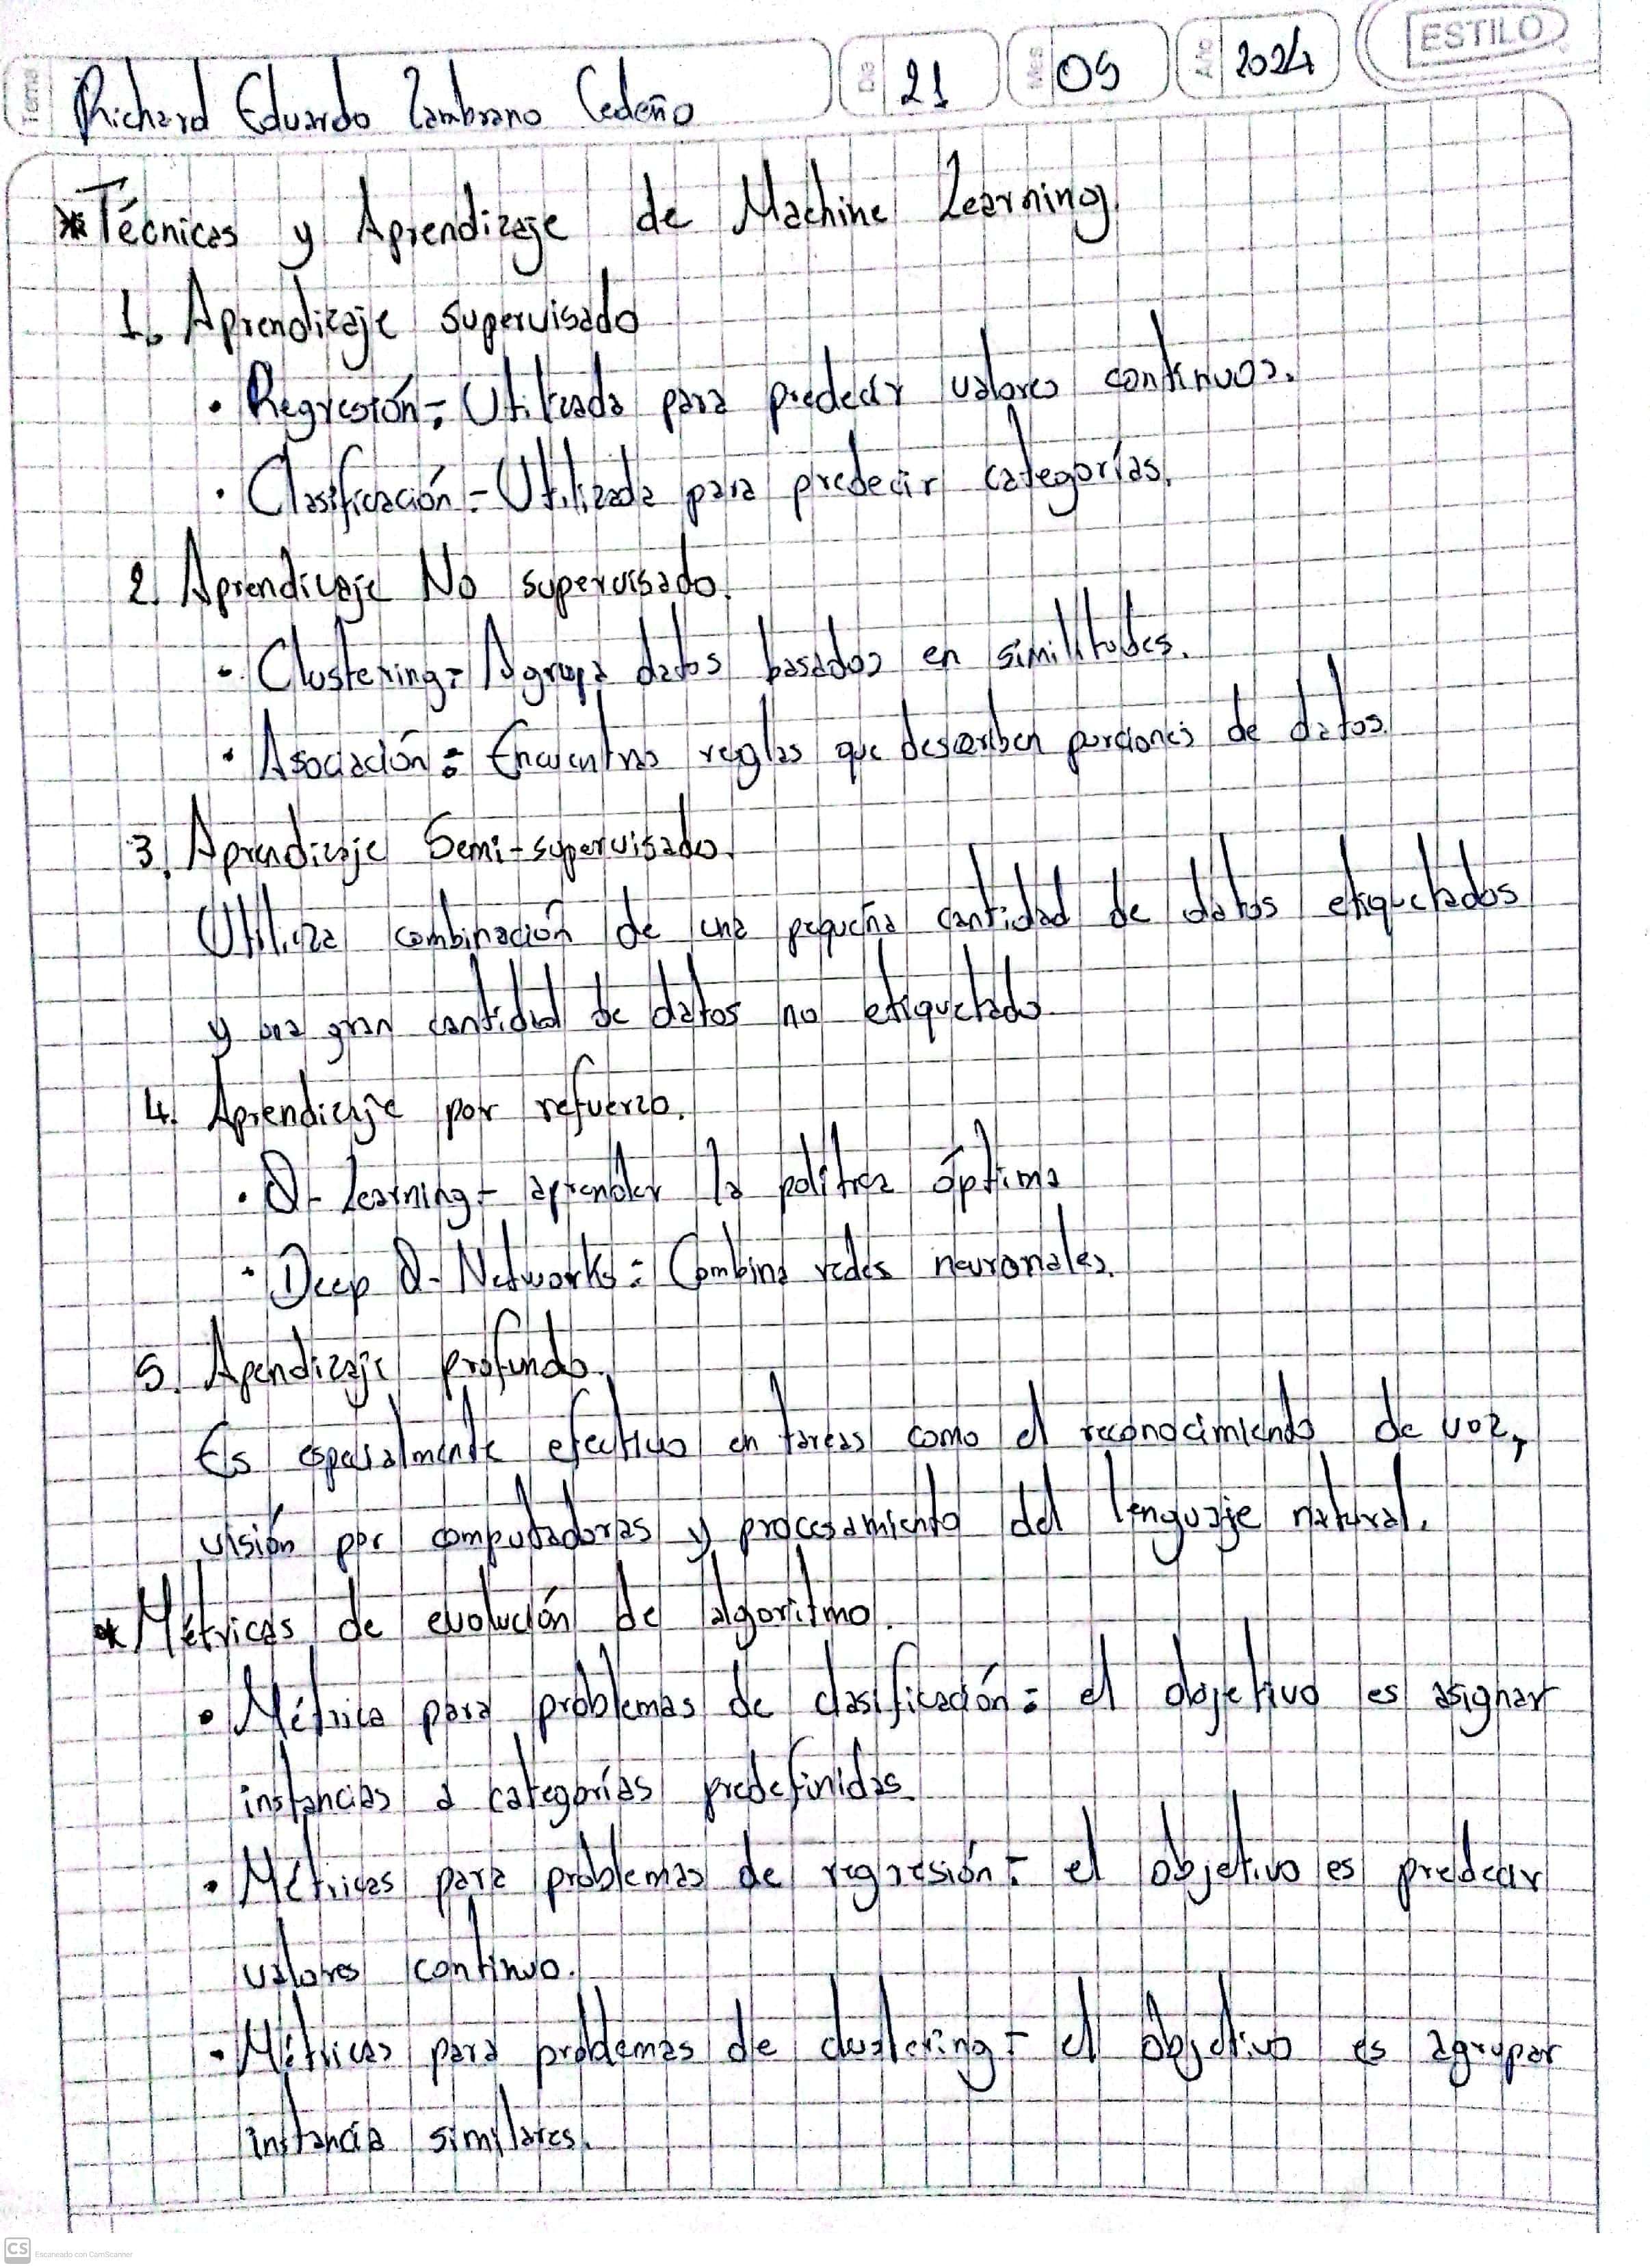 Tema
Richard Eduardo Zambrano Cedeño
Día 21 Mes 05 Año 2024 ESTILO
* Técnicas y Aprendizaje de Machine Learning.
1. Aprendizaje supervisado
• Regresión: Utilizada para predecir valores continuos.
• Clasificación: Utilizada para predecir categorías.
2. Aprendizaje No supervisado.
• Clustering: Agrupa datos basados en similitudes.
• Asociación: Encuentra reglas que describen porciones de datos.
3. Aprendizaje Semi-supervisado.
Utiliza combinación de una pequeña cantidad de datos etiquetados
y una gran cantidad de datos no etiquetado
4. Aprendizaje por refuerzo.
• Q-Learning: aprender la política óptima
• Deep Q-Networks: Combina redes neuronales.
5. Apendizaje profundo.
Es especialmente efectivo en tareas como el reconocimiento de voz,
visión por computadoras y procesamiento del lenguaje natural.
* Métricas de evolución de algoritmo.
• Métrica para problemas de clasificación: el objetivo es asignar
instancias a categorías predefinidas
• Métricas para problemas de regresión: el objetivo es predecir
valores continuo.
• Métricas para problemas de clustering: el objetivo es agrupar
instancia similares.
CS Escaneado con CamScanner